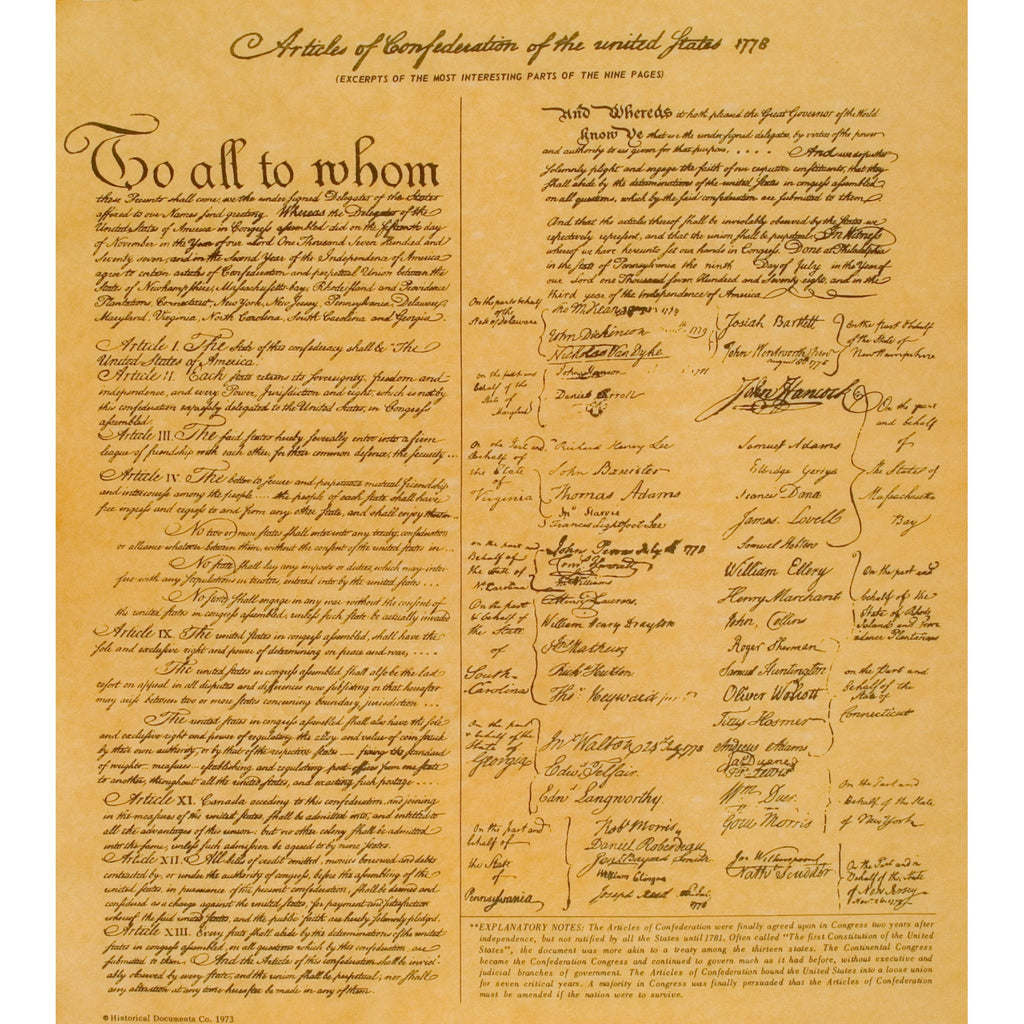 Articles of Confederation of the united States 1778
(EXCERPTS OF THE MOST INTERESTING PARTS OF THE NINE PAGES)
To all to whom
these Presents shall come, we the under signed Delegates of the States
affixed to our Names send greeting. Whereas the Delegates of the
United States of America in Congress assembled did on the fifteenth day
of November in the Year of our Lord One Thousand Seven Hundred and
Seventy seven, and in the Second Year of the Independence of America
agree to certain articles of Confederation and perpetual Union between the
States of Newhampshire, Massachusetts-bay, Rhodeisland and Providence
Plantations, Connecticut, New York, New Jersey, Pennsylvania, Delaware,
Maryland, Virginia, North Carolina, South Carolina and Georgia.
Article I. The Stile of this confederacy shall be "The
United States of America.
Article II. Each state retains its sovereignty, freedom and
independence, and every Power, Jurisdiction and right, which is not by
this confederation expressly delegated to the United States, in Congress
assembled.
Article III. The said states hereby severally enter into a firm
league of friendship with each other, for their common defence, the security ...
Article IV. The better to secure and perpetuate mutual friendship
and intercourse among the people .... the people of each state shall have
free ingress and regress to and from any other state, and shall enjoy therein ...
No two or more states shall enter into any treaty, confederation
or alliance whatever between them, without the consent of the united states in ...
No state shall lay any imposts or duties, which may inter-
fere with any stipulations in treaties, entered into by the united states ....
No state shall engage in any war without the consent of
the united states in congress assembled, unless such state be actually invaded
Article IX. The united states in congress assembled, shall have the
sole and exclusive right and power of determining on peace and war, ....
The united states in congress assembled shall also be the last
resort on appeal in all disputes and differences now subsisting or that hereafter
may arise between two or more states concerning boundary, jurisdiction ...
The united states in congress assembled shall also have the sole
and exclusive right and power of regulating the alloy and value of coin struck
by their own authority, or by that of the respective states — fixing the standard
of weights measures... establishing and regulating post-offices from one state
to another, throughout all the united states, and exacting such postage ....
Article XI. Canada acceding to this confederation, and joining
in the measures of the united states, shall be admitted into, and entitled to
all the advantages of this union: but no other colony shall be admitted
into the same, unless such admission be agreed to by nine states.
Article XII. All bills of credit emitted, monies borrowed and debts
contracted by, or under the authority of congress, before the assembling of the
united states, in pursuance of the present confederation, shall be deemed and
considered as a charge against the united states, for payment and satisfaction
whereof the said united states, and the public faith are hereby solemnly pledged.
Article XIII. Every state shall abide by the determinations of the united
states in congress assembled, on all questions which by this confederation are
submitted to them. And the Articles of this confederation shall be invio-
lably observed by every state, and the union shall be perpetual; nor shall
any alteration at any time hereafter be made in any of them.
© Historical Documents Co. 1973
And Whereas it hath pleased the Great Governor of the World
Know Ye that we the undersigned delegates, by virtue of the power
and authority to us given for that purpose, .... And we do further
solemnly plight and engage the faith of our respective constituents, that they
shall abide by the determinations of the united states in congress assembled
on all questions, which by the said confederation are submitted to them.
And that the articles thereof shall be inviolably observed by the states we
respectively represent, and that the union shall be perpetual. In Witness
whereof we have hereunto set our hands in Congress. Done at Philadelphia
in the state of Pennsylvania the ninth Day of July in the Year of
our Lord one Thousand Seven Hundred and Seventy eight, and in the
third year of the Independence of America
On the part & behalf
of the
State of Delaware
Tho M:Kean
1779
John Dickinson
1779
Nicholas Van Dyke
on the part and
behalf of the
State of
Maryland
John Hanson
Daniel Carroll
On the Part and
Behalf of
the State
of
Virginia
Richard Henry Lee
John Banister
Thomas Adams
Jn° Harvie
Francis Lightfoot Lee
on the part and
Behalf of
the State of
N° Carolina
John Penn July 1778
Corns Harnett
Jn° Williams
On the part
& behalf of
the State
of
South-
Carolina
Henry Laurens.
William Henry Drayton
Jn° Mathews
Richd Hutson.
Thos Heyward junr
On the part
& behalf of the
State of
Georgia
Jn° Walton 24th July 1778
Edwd Telfair.
Edwd Langworthy.
On the part and
behalf of
the State
of
Pennsylvania
Robt Morris
Daniel Roberdeau
Jon. Bayard Smith
William Clingan
Joseph Reed
1778
Josiah Bartlett
John Wentworth Junr
august 8th 1778
On the part & behalf
of the State of
New Hampshire
John Hancock
Samuel Adams
Elbridge Gerry
Francis Dana
James Lovell
Samuel Holten
On the part
and behalf
of
the State of
Massachusetts
Bay
William Ellery
Henry Marchant
John Collins
On the part and
behalf of the
State of Rhode
Island and Provi
dence Plantations
Roger Sherman
Samuel Huntington
Oliver Wolcott
Titus Hosmer
Andrew Adams
on the Part and
behalf of the
State of
Connecticut
Jas Duane
Fra: Lewis
Wm Duer.
Gouv Morris
On the Part and
Behalf of the State
of New York
Jno Witherspoon
Nathl Scudder
On the Part and in
Behalf of the State
of New Jersey
Novr 26, 1778
**EXPLANATORY NOTES: The Articles of Confederation were finally agreed upon in Congress two years after
independence, but not ratified by all the States until 1781. Often called "The first Constitution of the United
States", the document was more akin to a treaty among the thirteen states. The Continental Congress
became the Confederation Congress and continued to govern much as it had before, without executive and
judicial branches of government. The Articles of Confederation bound the United States into a loose union
for seven critical years. A majority in Congress was finally persuaded that the Articles of Confederation
must be amended if the nation were to survive.